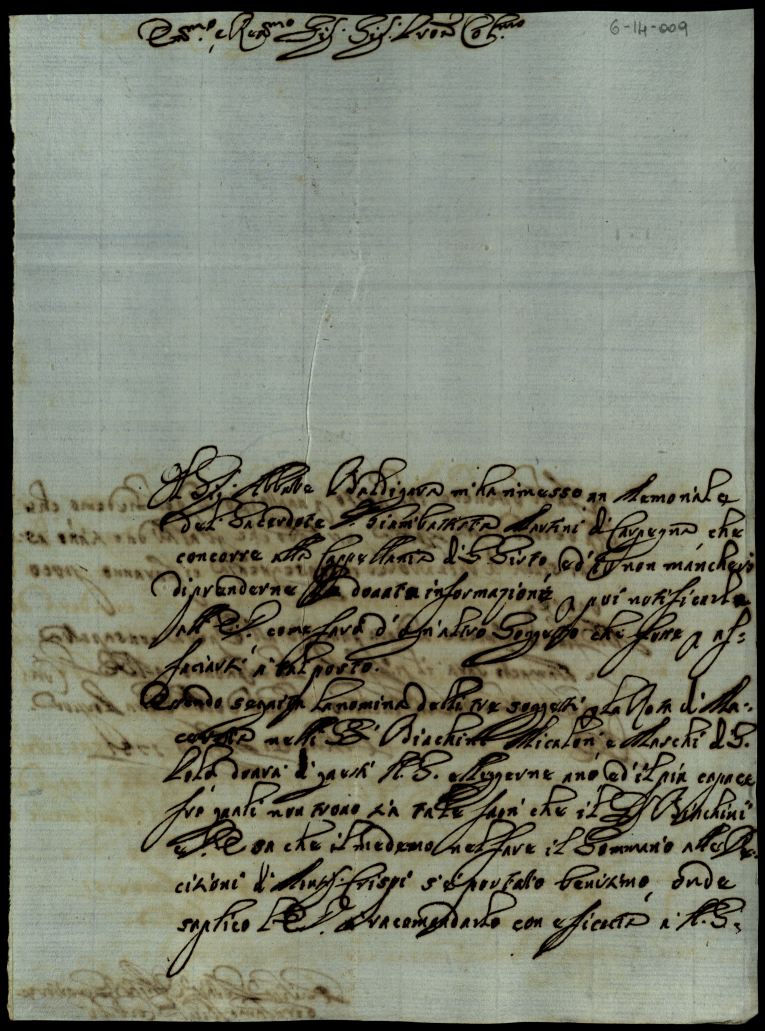 Em.mo e Rev.mo Sig.r Sig.r Pron Col.mo
6-14-009
Il Sig.r Abbate Baldigara m'ha rimesso un Memoriale
del Sacerdote Giambattista Martini di Carpegna che
concorre alla Cappellania di S. Sisto, ed io non mancherò
di prenderne le dovute informazioni, p. poi notificarle
all' E.V. come farò d'ogn'altro Soggetto che fosse p. af=
facciarsi à tal posto.
Essendo seguita la nomina delli tre soggetti p. la Rota di Ma=
cerata nelli SS.ri Biachini Micaloni e Marchi di S.
dovrà di questi N. S. eleggerne uno ed il più capace
frà quali non trovo sia tale fuori che il Sr Biachini
e che il medemo nel fare il Sommario alle De=
cisioni di Crispi s'è portato benissimo, onde
suplico l'E.V. à racomandarlo con eficacia à N. S.